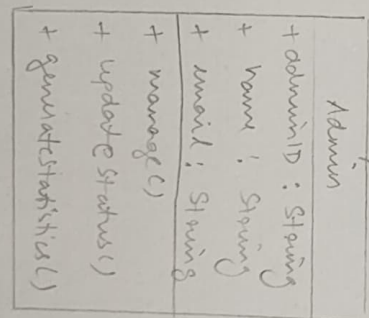 Admin
+ adminID : String
+ name : String
+ email : String
+ manage()
+ updateStatus()
+ generateStatistics()